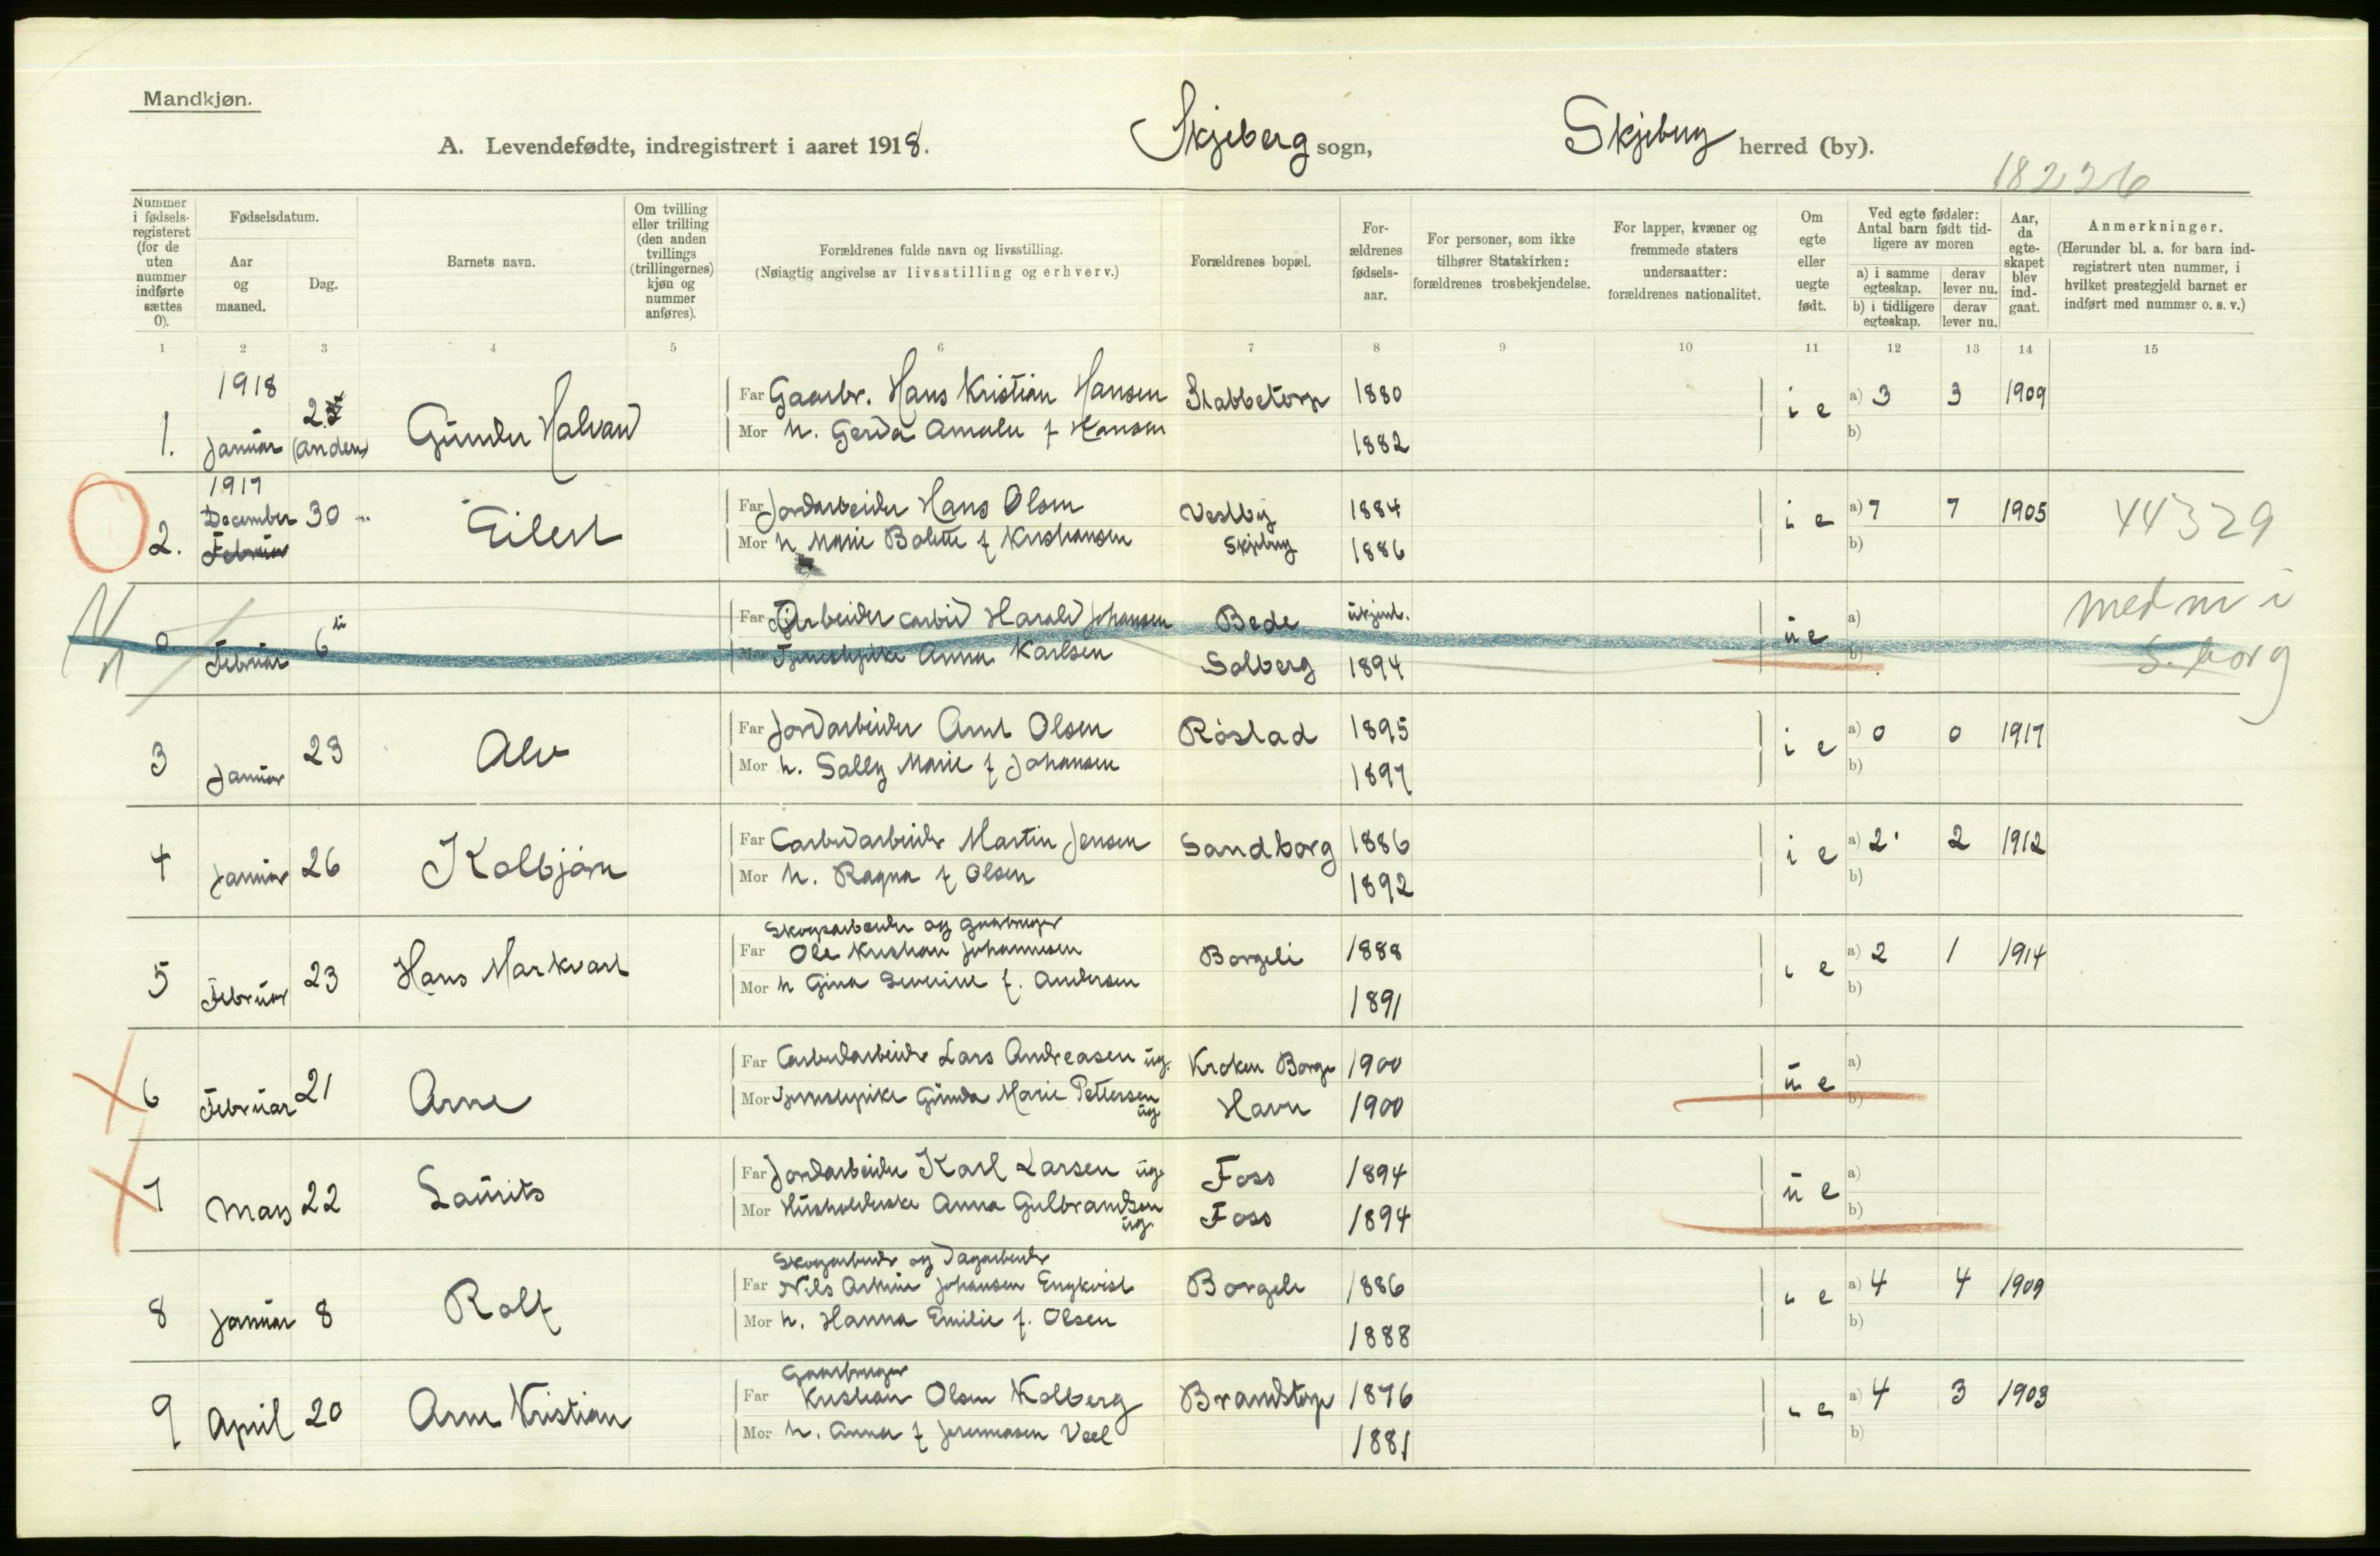 Mandkjøn.
A. Levendefødte, indregistrert i aaret 1918. Skjeberg sogn, Skjeberg herred (by).
18226
Nummer i fødsels-registeret (for de uten nummer indførte sættes 0).
Fødselsdatum.
Aar og maaned.
Dag.
Barnets navn.
Om tvilling eller trilling (den anden tvillings (trillingernes) kjøn og nummer anføres).
Forældrenes fulde navn og livsstilling.
(Nøiagtig angivelse av livsstilling og erhverv.)
Forældrenes bopæl.
For-ældrenes fødsels-aar.
For personer, som ikke tilhører Statskirken: forældrenes trosbekjendelse.
For lapper, kvæner og fremmede staters undersaatter: forældrenes nationalitet.
Om egte eller uegte født.
Ved egte fødsler: Antal barn født tid-ligere av moren
a) i samme egteskap. derav lever nu.
b) i tidligere egteskap. derav lever nu.
Aar, da egte-skapet blev ind-gaat.
Anmerkninger.
(Herunder bl. a. for barn ind-registrert uten nummer, i hvilket prestegjeld barnet er indført med nummer o. s. v.)
1 2 3 4 5 6 7 8 9 10 11 12 13 14 15
1918
Far Gaarbr. Hans Kristian Hansen Stabbetorp 1880 i e a) 3 3 1909
1. Januar (anden) Gunder Halvard
Mor h. Gerda Amalie f Hansen 1882 b)
1917
Far Jordarbeider Hans Olsen Vestby 1884 i e a) 7 7 1905 44329
2. December 30 Eilert
Februar
Mor h Marie Bolette f Kristiansen Skjeberg 1886 b)
Far Arbeider carbid Harald Johansen Bede ukjent. u e a) med nr i
0 Februar 6
Mor Tjenestepike Anna Karlsen Solberg 1894 b) S.borg
Far Jordarbeider Arnt Olsen Røstad 1895 i e a) 0 0 1917
3 Januar 23 Alv
Mor h. Sally Marie f Johansen 1897 b)
Far Carbidarbeider Martin Jensen Sandborg 1886 i e a) 2 2 1912
4 Januar 26 Kolbjørn
Mor h. Ragna f Olsen 1892 b)
Skogsarbeider og gaardbruger
Far Ole Kristian Johannesen Borgeli 1888 i e a) 2 1 1914
5 Februar 23 Hans Markvart
Mor h Gina Severine f. Andersen 1891 b)
Far Carbidarbeider Lars Andreasen ug. Kroken Borge 1900 u e a)
6 Februar 21 Arne
Mor Tjenestepike Gunda Marie Pettersen ug Havn 1900 b)
Far Jordarbeider Karl Larsen ug Foss 1894 u e a)
7 Mars 22 Laurits
Mor Husholderske Anna Gulbrandsen ug. Foss 1894 b)
Skogarbeider og Dagarbeider
Far Nils Arthur Johansen Engkvist Borgeli 1886 i e a) 4 4 1909
8 Januar 8 Rolf
Mor h. Hanna Emilie f. Olsen 1888 b)
Gaardbruger
Far Kristian Olsen Kolberg Brandstorp 1876 i e a) 4 3 1903
9 April 20 Arne Kristian
Mor h. Anna f Veel 1881 b)